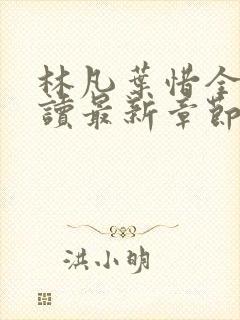 林凡葉惜全
讀最新章節
洪小明